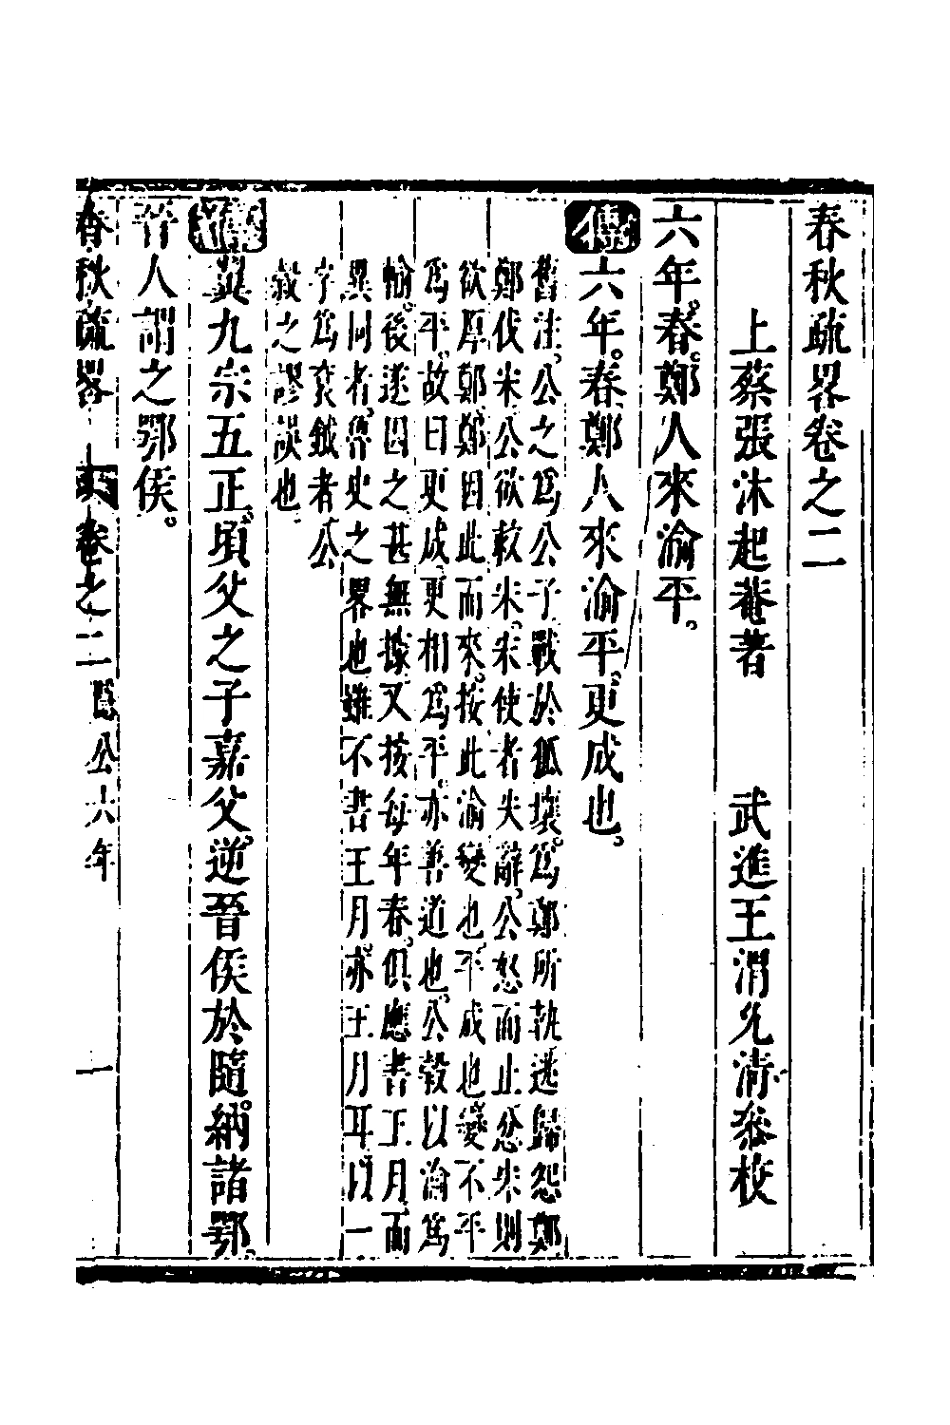 春秋疏畧卷之二
上蔡張沐起菴著　武進王渭允清叅校
六年。春。鄭人來渝平。
傳六年。春鄭人來渝平。更成也。
舊注。公之爲公子戰於狐壤。爲鄭所執逃歸怨鄭
鄭伐宋公欲救宋。宋使者失辭。公怒而止忿宋則
欲厚鄭。鄭因此而來。按此渝變也。平成也。變不平
爲平。故曰更成。更相爲平。亦善道也。公穀以渝爲
輸。後遂因之甚無據又按每年春。俱應書王月而
異同者。魯史之畧也雖不書王月。亦王月耳。以一
字爲衮鉞者公
穀之謬誤也
傳翼九宗五正。頃父之子嘉父。逆晉侯於隨。納諸鄂。
晉人謂之鄂侯。
春秋疏畧　卷之二隱公六年　一